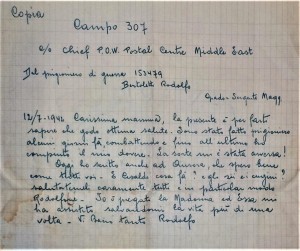 Copia
Campo 307
c/o Chief P.O.W. Postal Centre Middle East
Del prigioniero di guerra 153479
Bertoletti Rodolfo
Grado: Sergente Magg.
12/7-1942 Carissima mamma, la presente è per farti
sapere che godo ottima salute. Sono stato fatto prigioniero
alcuni giorni fà combattendo e fino all'ultimo ho
compiuto il mio dovere. La sorte mi è stata avversa!
Oggi ho scritto anche ad che spero bene
come tutti voi. E cosa fà? e gli zii e cugini?
salutatemeli caramente tutti e in particolar modo
Rodolfino. Io ò pregato la Madonna ed Essa mi
ha assistito salvandomi la vita più di una
volta. Vi Bacio tanto Rodolfo